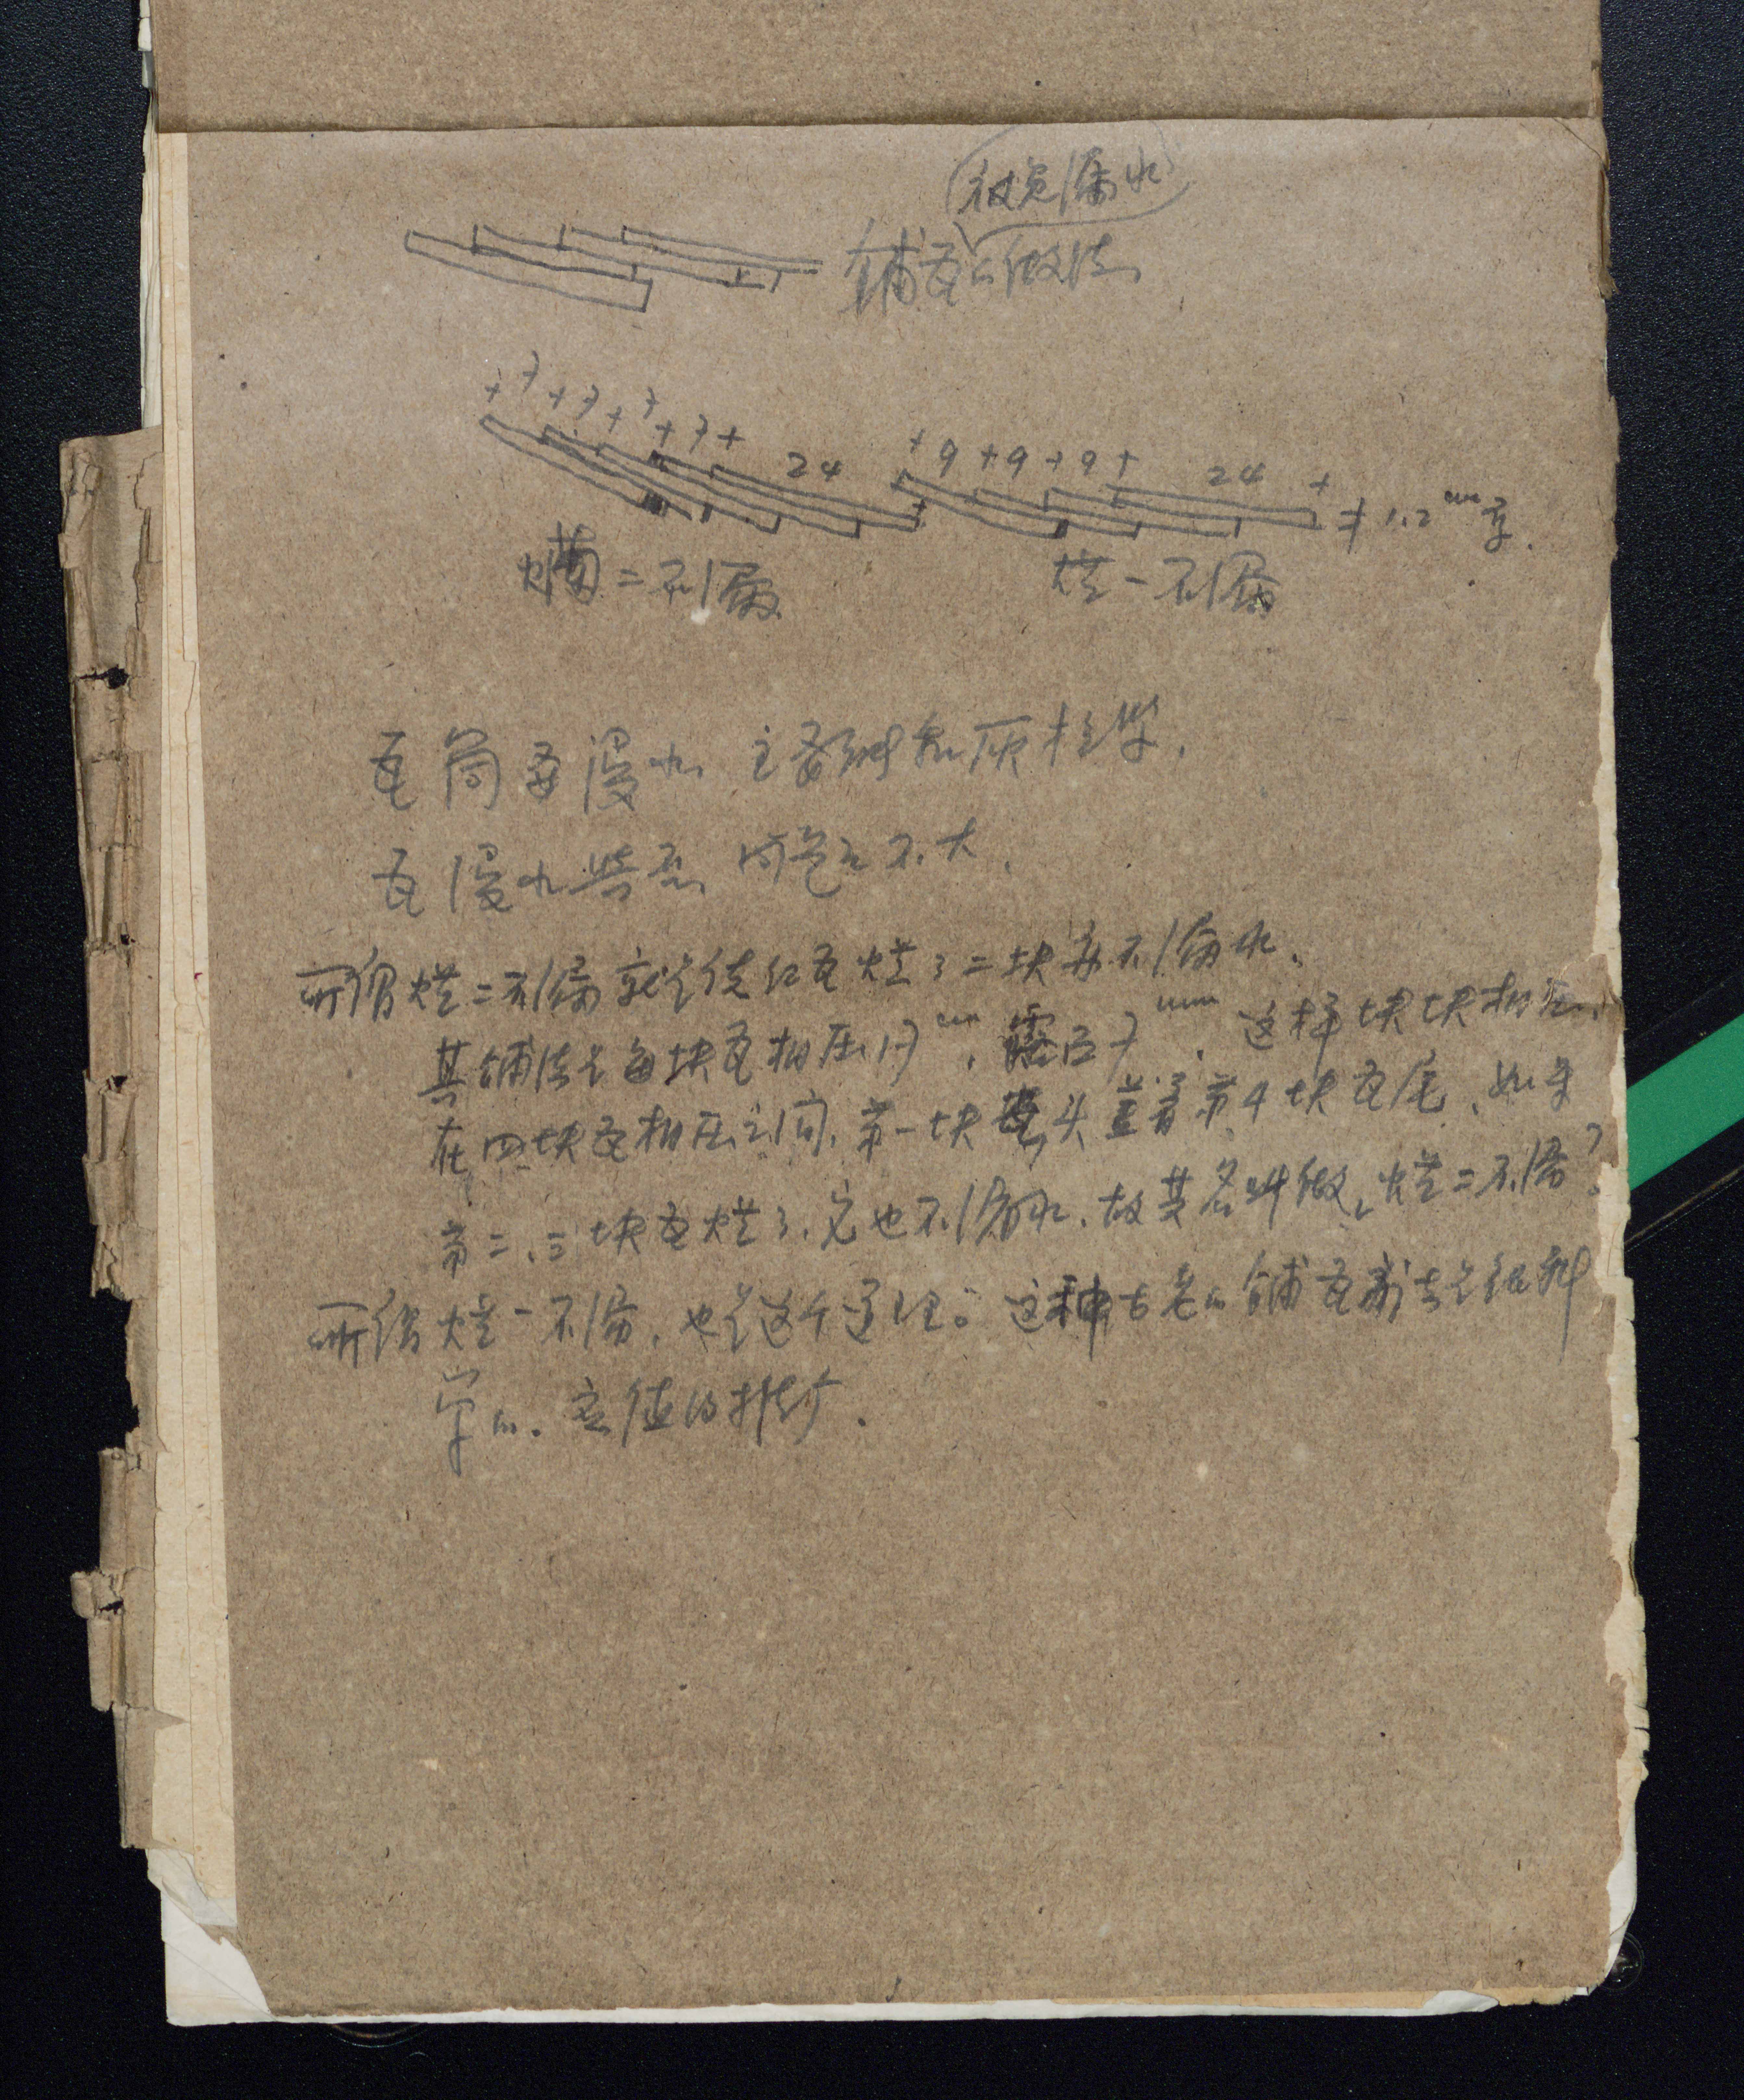 避免漏水
铺瓦的做法
7 7 7 7 24
9 9 9 24 1.2 cm 厚.
烂二不漏
烂一不漏
瓦筒要浸水 主要和灰
瓦浸水与否 问题不大.
所谓烂二不漏就是使红瓦烂了二块并不漏水.
其铺法是每块瓦相压17cm, 露面7cm, 这样块块相压,
在四块瓦相压之间, 第一块瓦头盖着第4块瓦尾, 如果
第二、三块瓦烂了, 它也不漏水. 故其名叫做“烂二不漏”
所谓烂一不漏, 也是这个道理。这种古老的铺瓦方法是很科
学的. 应值得推广.